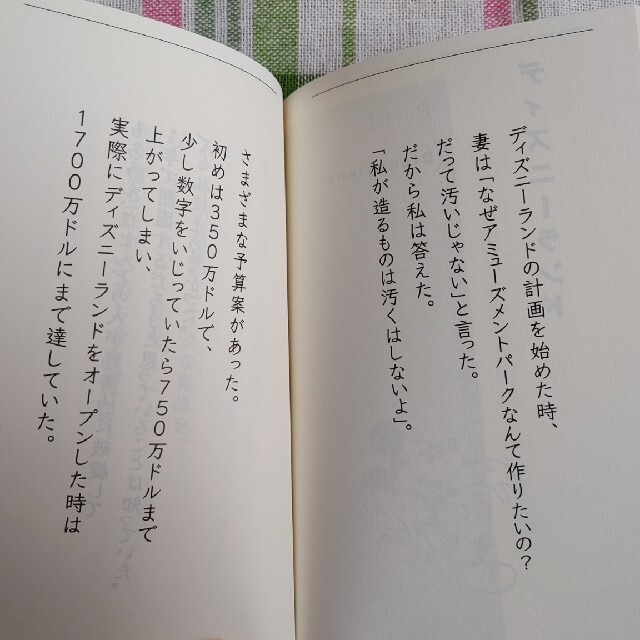 ディズニーランドの計画を始めた時、
妻は「なぜアミューズメントパークなんて作りたいの?
だって汚いじゃない」と言った。
だから私は答えた。
「私が造るものは汚くはしないよ」。
さまざまな予算案があった。
初めは350万ドルで、
少し数字をいじっていたら750万ドルまで
上がってしまい、
実際にディズニーランドをオープンした時は
1700万ドルにまで達していた。